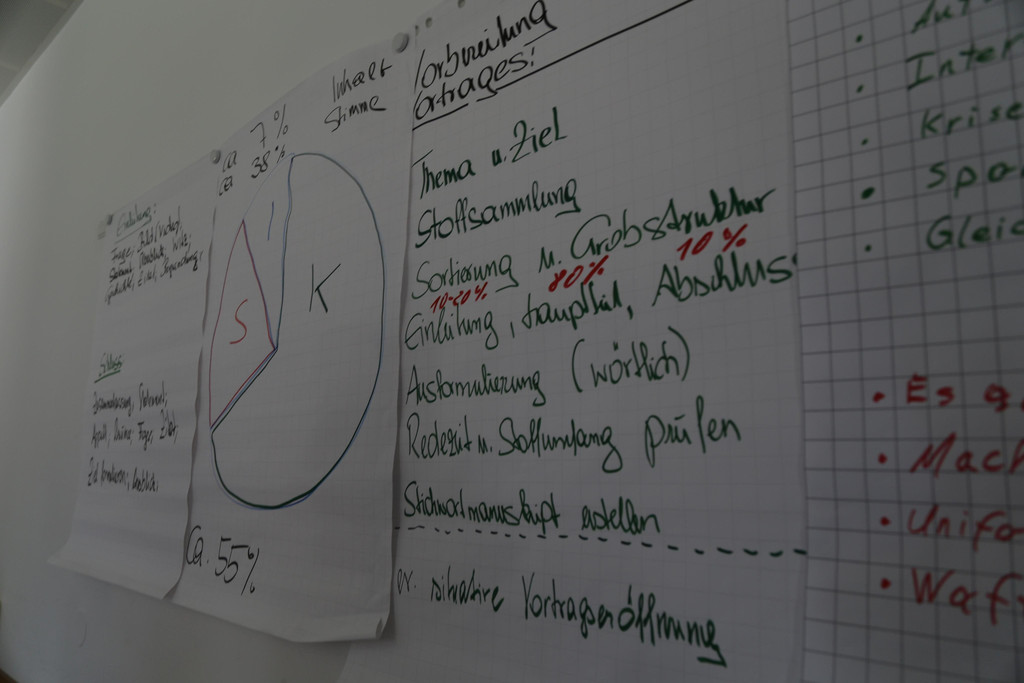 Einleitung:
Schluss:
Zusammenfassung, Statement,
Appell, Frage, Zitat,
ca 7% Inhalt
ca 38% Stimme
I
S
K
Ca. 55%
Vorbereitung
Vortrages:
Thema u. Ziel
Stoffsammlung
Sortierung u. Grobstruktur
10-20% 80% 10%
Einleitung, Hauptteil, Abschluss
Ausformulierung (wörtlich)
Redezeit u. Stoffumfang prüfen
Stichwortmanuskript erstellen
ev. situative Vortragseröffnung
• Inter
• Krise
• Spa
• Gleic
• Es g
• Mach
• Unifo
• Waf